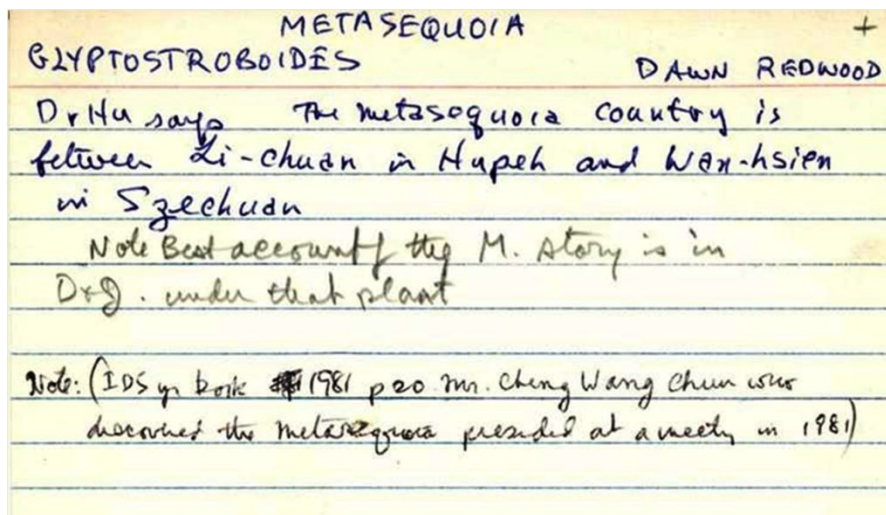 METASEQUOIA +
GLYPTOSTROBOIDES DAWN REDWOOD
Dr Hu says The metasequoia country is
between Li-chuan in Hupeh and Wan-hsien
in Szechuan
Note Best account of the M. story is in
under that plant
Note: (IDS yr book 1981 p20 Mr. Cheng Wang Chun who
discovered the metasequoia presided at a meeting in 1981)